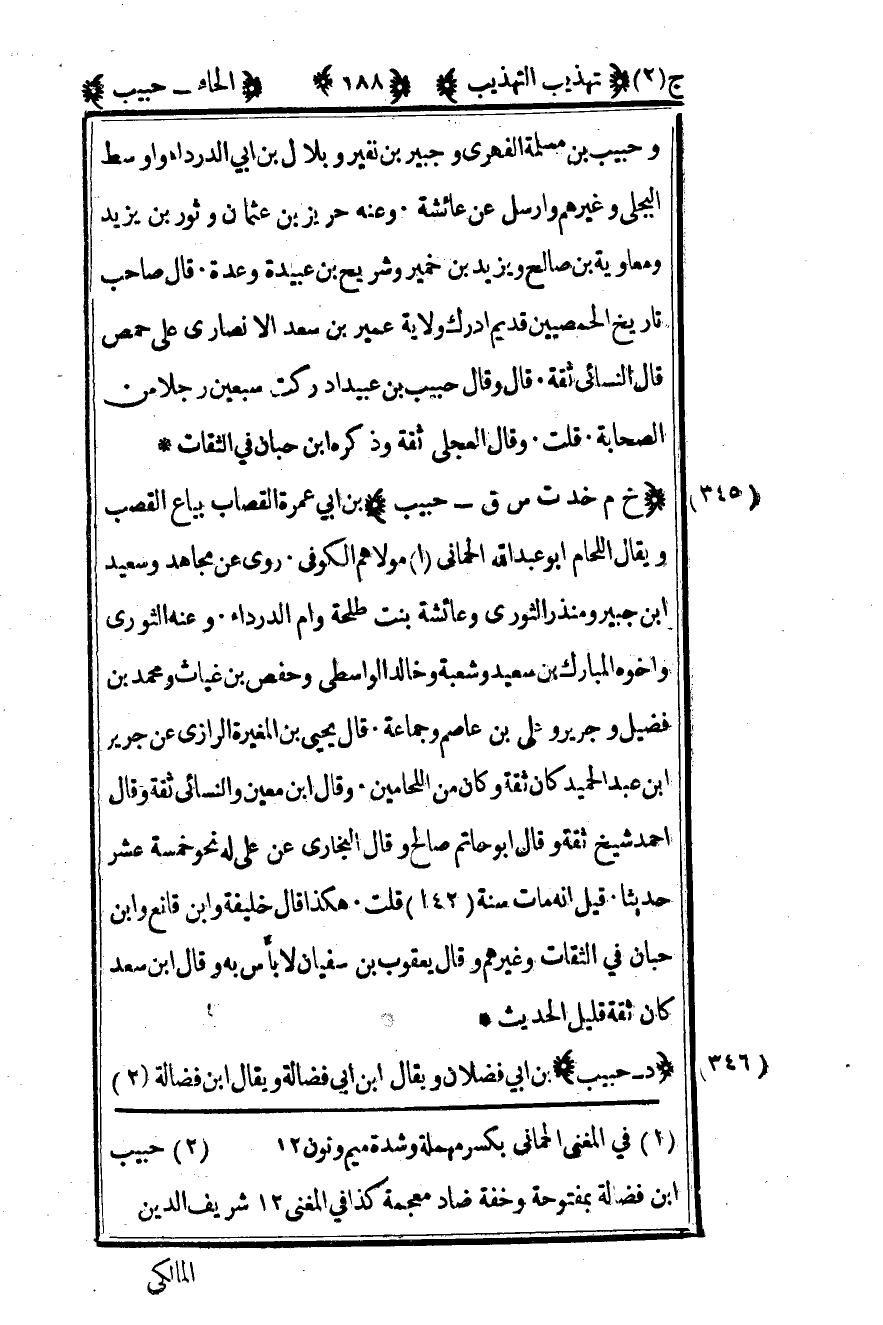 ج(٢) ﴿ تهذيب التهذيب ﴾ ﴿ ١٨٨ ﴾ ﴿ الحاء ـ حبيب ﴾
و حبيب بن مسلمة الفهرى و جبير بن نفير و بلال بن ابي الدرداء و اوسط
البجلى و غيرهم وارسل عن عائشة ٠ وعنه حريز بن عثمان و ثور بن يزيد
ومعاوية بن صالح و يزيد بن خمير وشريح بن عبيدة وعدة ٠ قال صاحب
تاريخ الحمصيين قديم ادرك ولاية عمير بن سعد الانصارى على حمص
قال النسائى ثقة ٠ قال وقال حبيب بن عبيد ادركت سبعين رجلا من
الصحابة ٠ قلت ٠ وقال العجلى ثقة وذكره ابن حبان في الثقات *
(٣٤٥) ﴿ خ م خد ت س ق ـ حبيب ﴾ بن ابي عمرة القصاب بياع القصب
و يقال اللحام ابو عبد الله الحمانى (١) مولاهم الكوفى ٠ روى عن مجاهد وسعيد
ابن جبير ومنذر الثورى وعائشة بنت طلحة وام الدرداء ٠ وعنه الثورى
واخوه المبارك بن سعيد وشعبة وخالد الواسطى وحفص بن غياث ومحمد بن
فضيل و جرير و على بن عاصم وجماعة ٠ قال يحيى بن المغيرة الرازى عن جرير
ابن عبد الحميد كان ثقة وكان من اللحامين ٠ وقال ابن معين والنسائى ثقة وقال
احمد شيخ ثقة و قال ابو حاتم صالح و قال البخارى عن على له نحو خمسة عشر
حديثا ٠ قيل انه مات سنة (١٤٢) قلت ٠ هكذا قال خليفة وابن قانع وابن
حبان في الثقات وغيرهم و قال يعقوب بن سفيان لا بأس به و قال ابن سعد
كان ثقة قليل الحديث *
(٣٤٦) ﴿ د ـ حبيب ﴾ بن ابي فضلان و يقال ابن ابي فضالة ويقال ابن فضالة (٢)
(١) في المغنى الحمانى بكسر مهملة وشدة ميم ونون ١٢ (٢) حبيب
ابن فضالة بمفتوحة وخفة ضاد معجمة كذا في المغنى ١٢ شريف الدين
المالكى